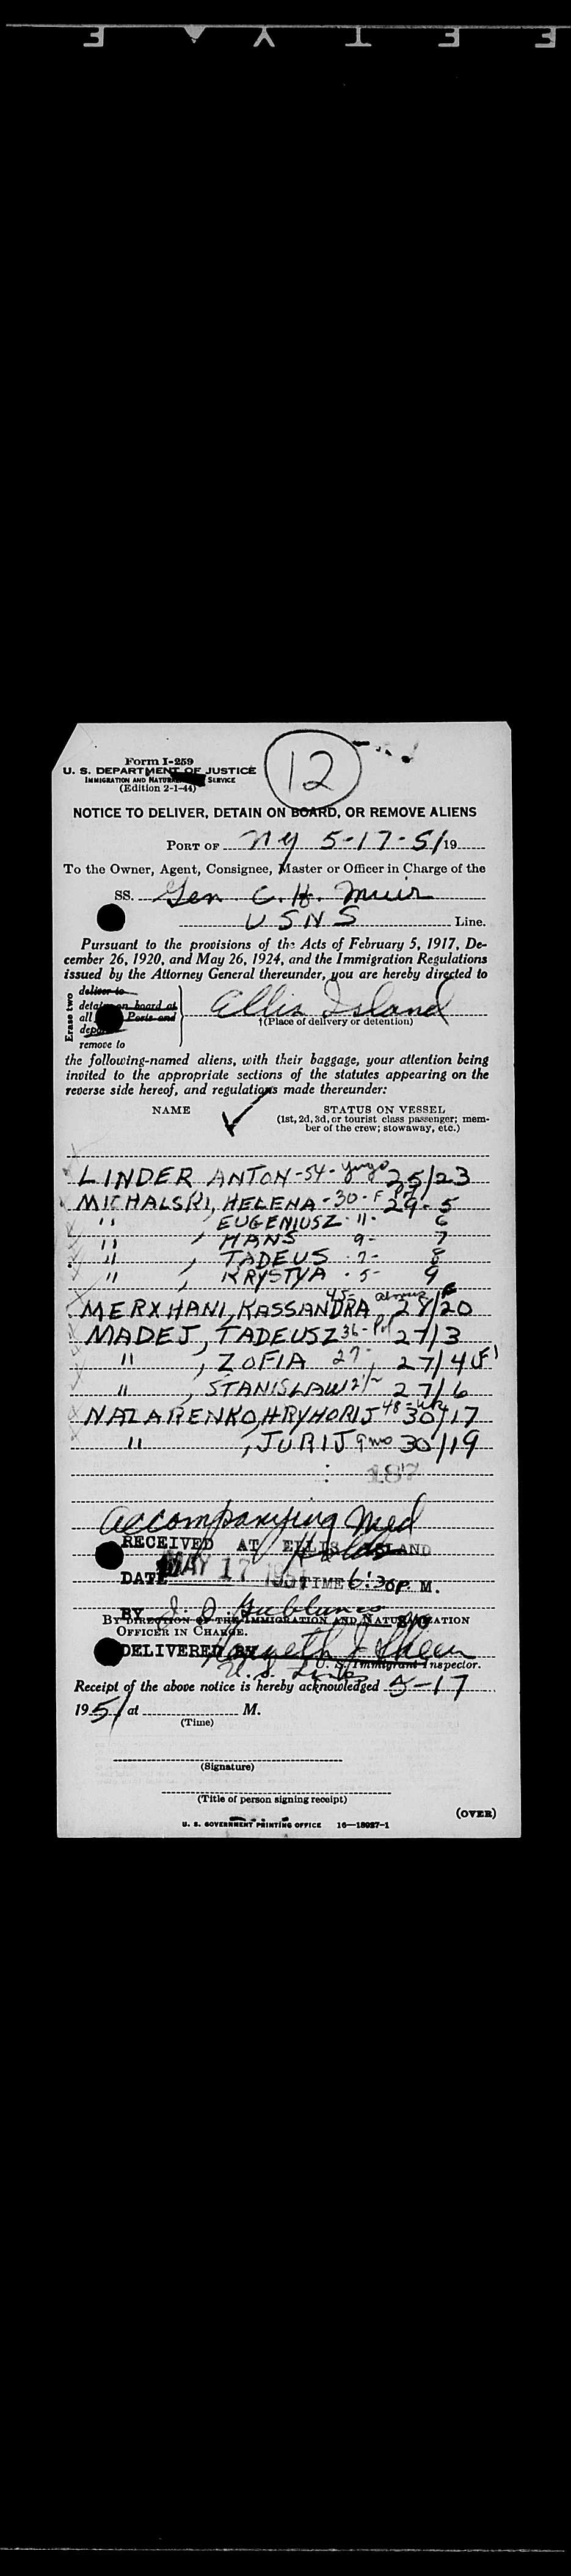 Form I-259
U. S. DEPARTMENT OF JUSTICE
IMMIGRATION AND SERVICE
(Edition 2-1-44)
12
NOTICE TO DELIVER, DETAIN ON BOARD, OR REMOVE ALIENS
PORT OF NY 5-17-51 19
To the Owner, Agent, Consignee, Master or Officer in Charge of the
SS. Gen. C. H. Muir
USNS Line.
Pursuant to the provisions of the Acts of February 5, 1917, De-
cember 26, 1920, and May 26, 1924, and the Immigration Regulations
issued by the Attorney General thereunder, you are hereby directed to
Erase two
deliver to
detain on board at
all Ports and
remove to
Ellis Island
†(Place of delivery or detention)
the following-named aliens, with their baggage, your attention being
invited to the appropriate sections of the statutes appearing on the
reverse side hereof, and regulations made thereunder:
NAME STATUS ON VESSEL
(1st, 2d, 3d, or tourist class passenger; mem-
ber of the crew; stowaway, etc.)
LINDER ANTON -54- yugo 25/23
MICHALSKI, HELENA -30- F Pol 29-5
" EUGENIUSZ - 11- 6
" , HANS 9- 7
" , TADEUS - 7- 8
" , KRYSTYA - 5- 9
MERXHANI, KASSANDRA 45- 27/20
MADEJ, TADEUSZ 36- Pol 27/3
" , ZOFIA 27- 27/4
" , STANISLAW 2½ 27/6
NAZARENKO, HRYHORIJ 48- Ukr 30/17
" , JURIJ 9 mo 30/19
187
Accompanying Med
Holds
RECEIVED AT ELLIS ISLAND
DATE MAY 17 1951 TIME 6:30 P. M.
BY
BY DIRECTION OF THE IMMIGRATION AND NATURALIZATION
OFFICER IN CHARGE.
DELIVERED BY
U. S. Immigrant Inspector.
Receipt of the above notice is hereby acknowledged 5-17
1951 at M.
(Time)
(Signature)
(Title of person signing receipt)
(OVER)
U. S. GOVERNMENT PRINTING OFFICE 16—18027-1